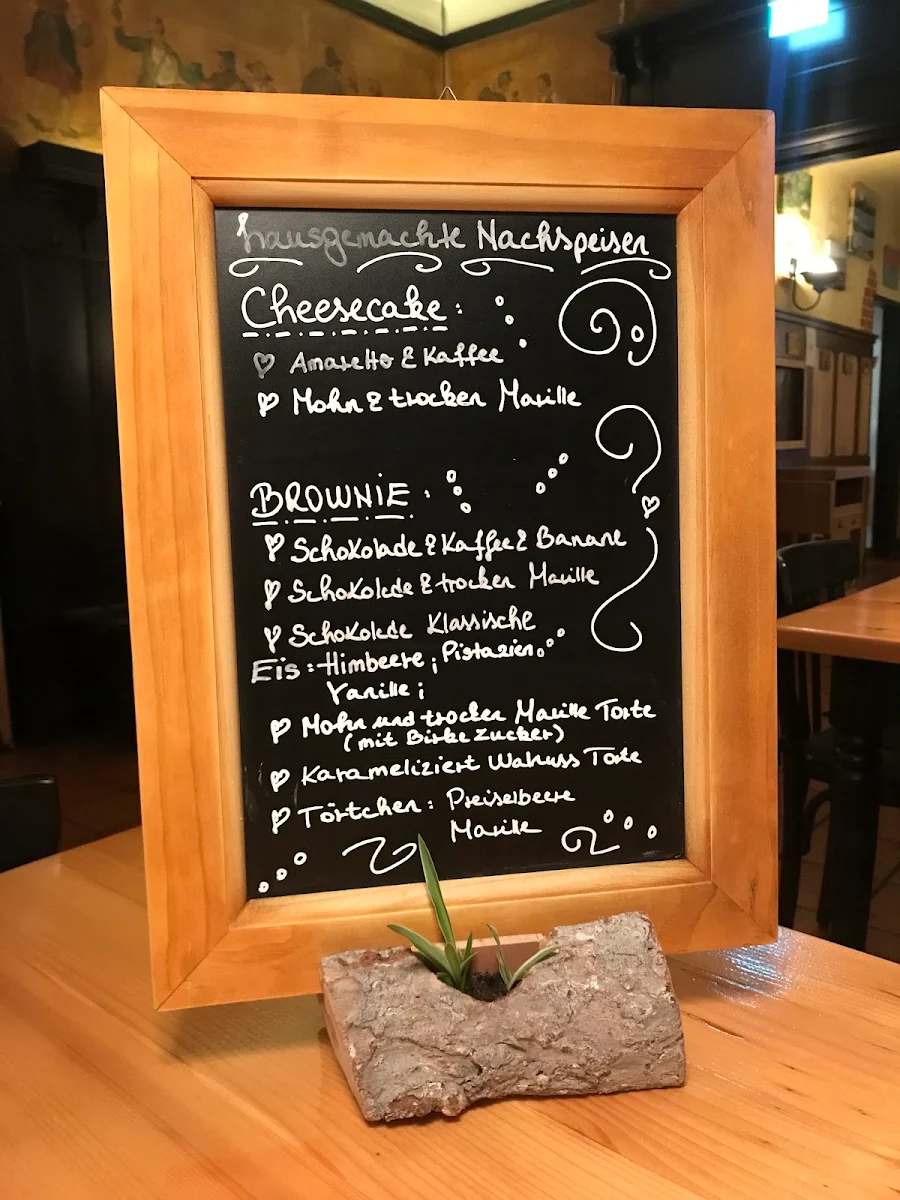 hausgemachte Nachspeisen
Cheesecake:
Amaretto & Kaffee
Mohn & trocken Marille
BROWNIE:
Schokolade & Kaffee & Banane
Schokolade & trocken Marille
Schokolade Klassische
Eis: Himbeere; Pistazien
Vanille;
Mohn und trocken Marille Torte
(mit Birkezucker)
Karameliziert Walnuss Torte
Törtchen: Preiselbeere
Marille